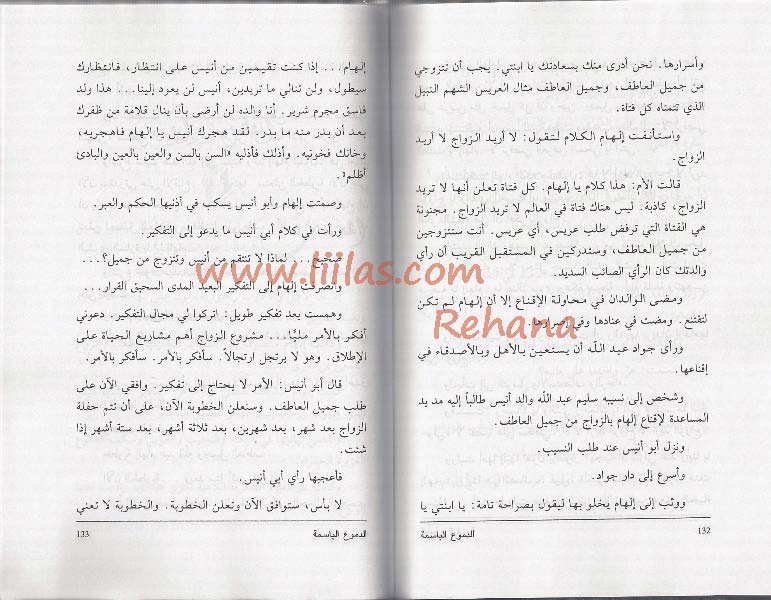 وأسرارها. نحن أدرى منك بسعادتك يا ابنتي. يجب أن تتزوجي
من جميل العاطف، وجميل العاطف مثال العريس الشهم النبيل
الذي تتمناه كل فتاة.
واستأنفت إلهام الكلام لتقول: لا أريد الزواج لا أريد
الزواج.
قالت الأم: هذا كلام يا إلهام. كل فتاة تعلن أنها لا تريد
الزواج، كاذبة. ليس هناك فتاة في العالم لا تريد الزواج. مجنونة
هي الفتاة التي ترفض طلب عريس، أي عريس. أنت ستتزوجين
من جميل العاطف، وستدركين في المستقبل القريب أن رأي
والدتك كان الرأي الصائب السديد.
ومضى الوالدان في محاولة الإقناع إلا أن إلهام لم تكن
لتقتنع. ومضت في عنادها وفي إصرارها.
ورأى جواد عبد الله أن يستعين بالأهل وبالأصدقاء في
إقناعها.
وشخص إلى نسيبه سليم عبد الله والد أنيس طالباً إليه مد يد
المساعدة لإقناع إلهام بالزواج من جميل العاطف.
ونزل أبو أنيس عند طلب النسيب.
وأسرع إلى دار جواد.
ووثب إلى إلهام يخلو بها ليقول بصراحة تامة: يا ابنتي يا
132
الدموع الباسمة
إلهام... إذا كنت تقيمين من أنيس على انتظار، فانتظارك
سيطول، ولن تنالي ما تريدين، أنيس لن يعود إلينا... هذا ولد
فاسق مجرم شرير. أنا والده لن أرضى بأن ينال قلامة من ظفرك
بعد أن بدر منه ما بدر. لقد هجرك أنيس يا إلهام فاهجريه،
وخانك فخونيه. وأذلك فأذليه «السن بالسن والعين بالعين والبادئ
أظلم».
وصمتت إلهام وأبو أنيس يسكب في أذنيها الحكم والعبر.
ورأت في كلام أبي أنيس ما يدعو إلى التفكير.
صحيح... لماذا لا تنتقم من أنيس وتتزوج من جميل؟...
وانصرفت إلهام إلى التفكير البعيد المدى السحيق القرار...
وهمست بعد تفكير طويل: اتركوا لي مجال التفكير. دعوني
أفكر بالأمر مليّاً... مشروع الزواج أهم مشاريع الحياة على
الإطلاق. وهو لا يرتجل ارتجالاً. سأفكر بالأمر. سأفكر بالأمر.
قال أبو أنيس: الأمر لا يحتاج إلى تفكير. وافقي الآن على
طلب جميل العاطف. وسنعلن الخطوبة الآن، على أن تتم حفلة
الزواج بعد شهر، بعد شهرين، بعد ثلاثة أشهر، بعد ستة أشهر إذا
شئت.
فأعجبها رأي أبي أنيس.
لا بأس، ستوافق الآن وتعلن الخطوبة. والخطوبة لا تعني
الدموع الباسمة
133
www.liilas.com
Rehana